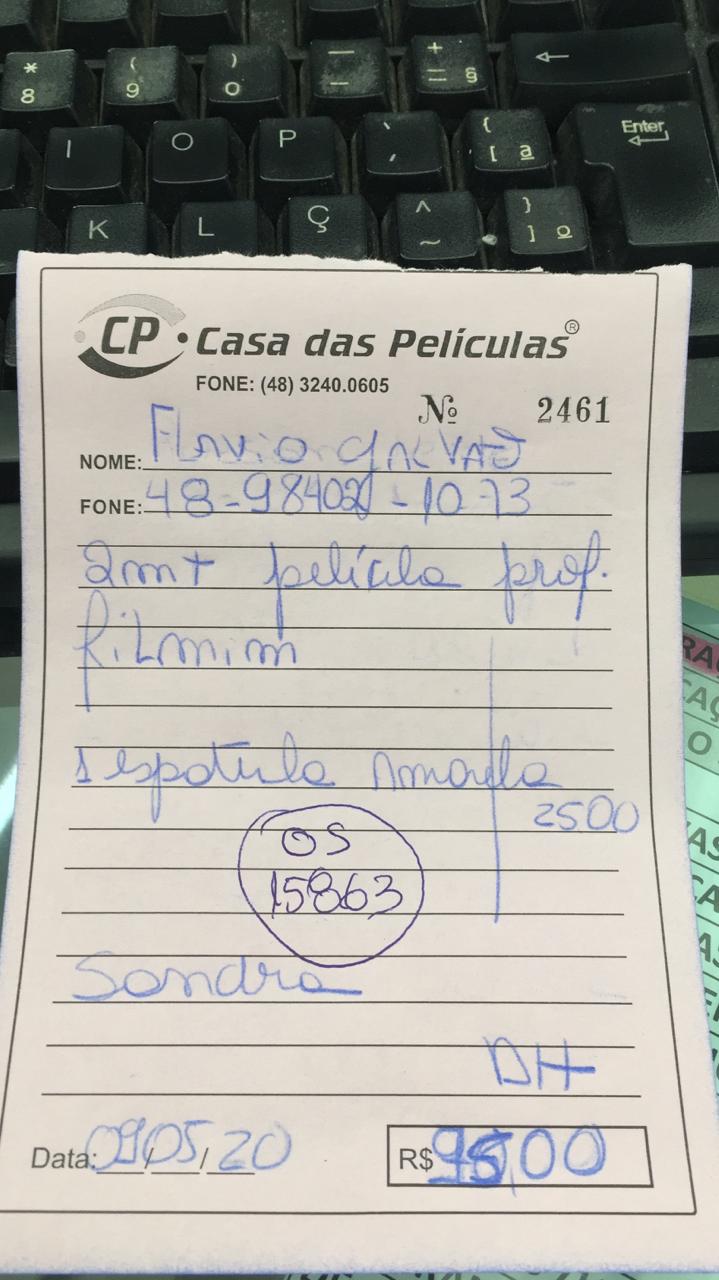 * ( ) — + ←
8 9 0 - = §
I O P ` ´ { [ ª Enter
K L Ç ^ ~ } ] º
CP · Casa das Películas®
FONE: (48) 3240.0605
Nº 2461
NOME: Flavio GALVAO
FONE: 48-98402-1073
2mt película prof.
filmim
1 espatula Amarela
2500
OS
15863
Sandra
DH
Data: 09/05/20 R$ 95,00